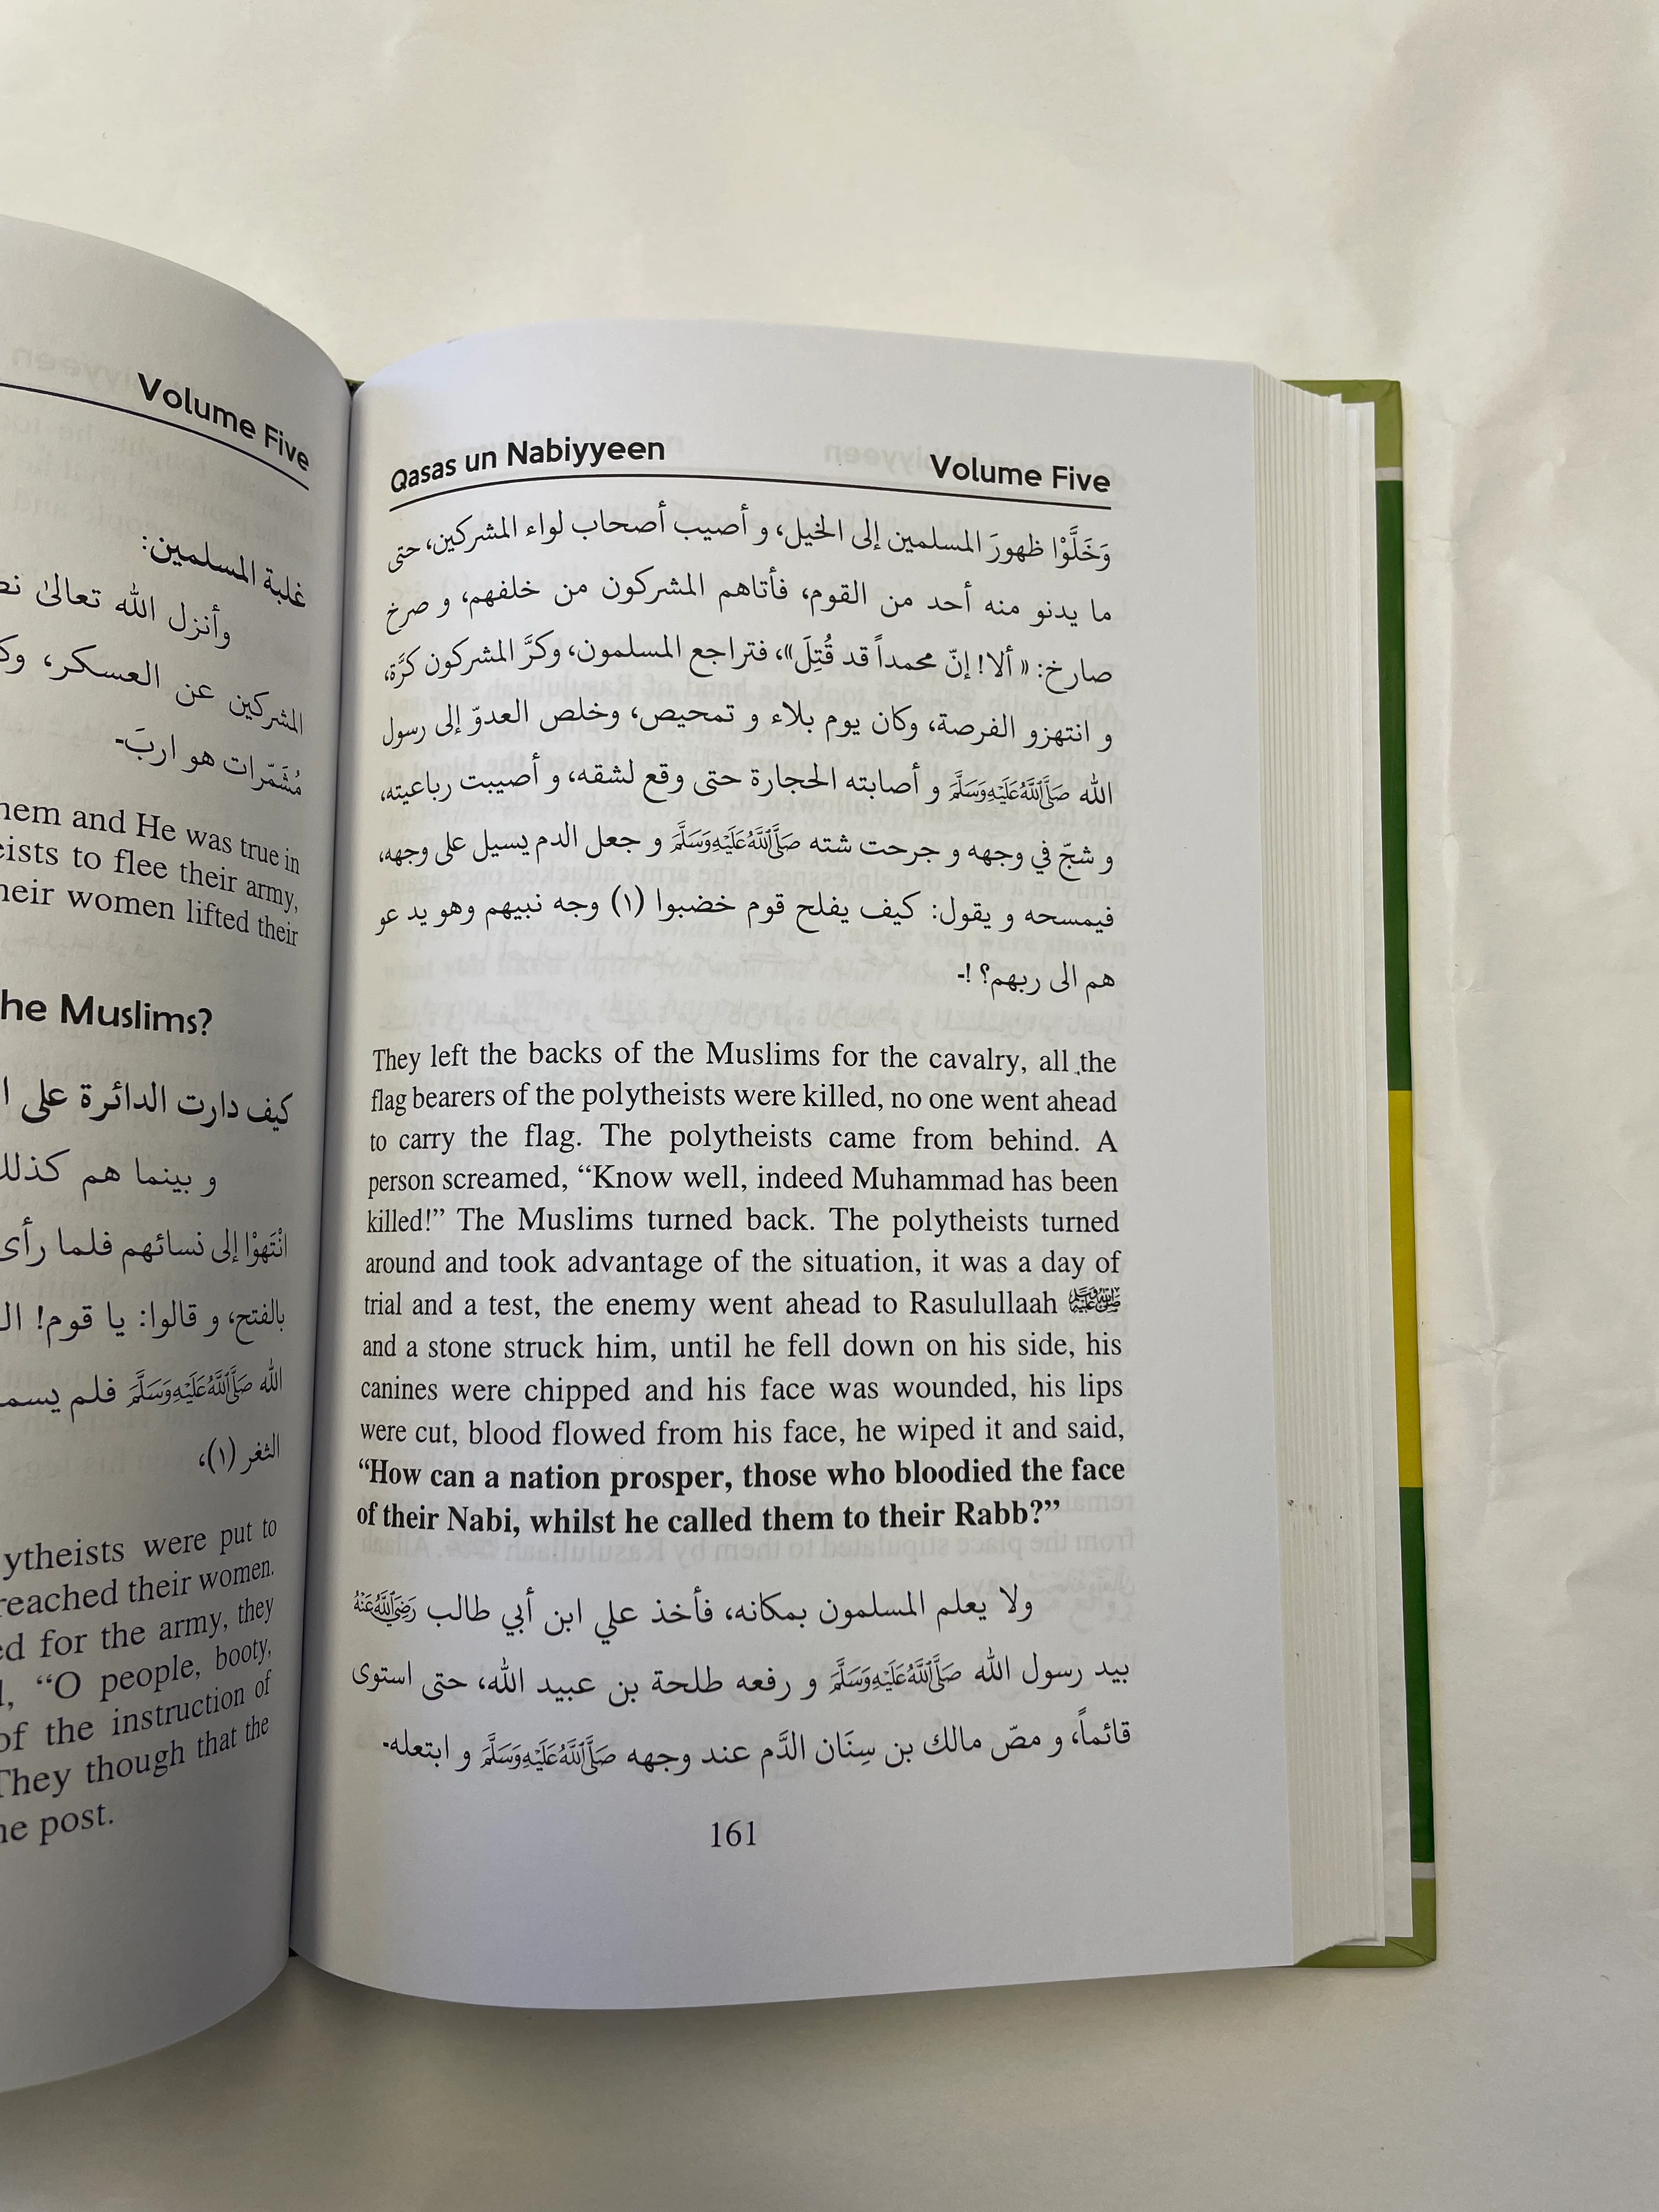 Volume Five
غلبة المسلمين:
وأنزل الله تعالىٰ
المشركين عن العسكر،
مُشَمّرات هو اربَ-
them and He was true in
to flee their army,
their women lifted their
the Muslims?
كيف دارت الدائرة على
و بينما هم كذلك
انْتَهوْا إلى نسائهم فلما رأى
بالفتح، و قالوا: يا قوم!
الله صَلَّىٰاللَّهُعَلَيْهِوَسَلَّمَ فلم
الثغر (١)،
were put to
reached their women.
for the army, they
“O people, booty,
of the instruction of
They though that the
post.
Qasas un Nabiyyeen Volume Five
وَخَلَّوْا ظهورَ المسلمين إلى الخيل، و أصيب أصحاب لواء المشركين، حتى
ما يدنو منه أحد من القوم، فأتاهم المشركون من خلفهم، و صرخ
صارخ: «ألا! إنّ محمداً قد قُتِلَ»، فتراجع المسلمون، وكرَّ المشركون كرَّة،
و انتهزو الفرصة، وكان يوم بلاء و تمحيص، وخلص العدوّ إلى رسول
الله صَلَّىٰاللَّهُعَلَيْهِوَسَلَّمَ و أصابته الحجارة حتى وقع لشقه، و أصيبت رباعيته،
و شجّ في وجهه و جرحت شته صَلَّىٰاللَّهُعَلَيْهِوَسَلَّمَ و جعل الدم يسيل على وجهه،
فيمسحه و يقول: كيف يفلح قوم خضبوا (١) وجه نبيهم وهو يد عو
هم الى ربهم؟ !-
They left the backs of the Muslims for the cavalry, all the
flag bearers of the polytheists were killed, no one went ahead
to carry the flag. The polytheists came from behind. A
person screamed, “Know well, indeed Muhammad has been
killed!” The Muslims turned back. The polytheists turned
around and took advantage of the situation, it was a day of
trial and a test, the enemy went ahead to Rasulullaah ﷺ
and a stone struck him, until he fell down on his side, his
canines were chipped and his face was wounded, his lips
were cut, blood flowed from his face, he wiped it and said,
“How can a nation prosper, those who bloodied the face
of their Nabi, whilst he called them to their Rabb?”
ولا يعلم المسلمون بمكانه، فأخذ علي ابن أبي طالب رَضِيَاللَّهُعَنْهُ
بيد رسول الله صَلَّىٰاللَّهُعَلَيْهِوَسَلَّمَ و رفعه طلحة بن عبيد الله، حتى استوى
قائماً، و مصّ مالك بن سِنَان الدَّم عند وجهه صَلَّىٰاللَّهُعَلَيْهِوَسَلَّمَ و ابتعله-
161